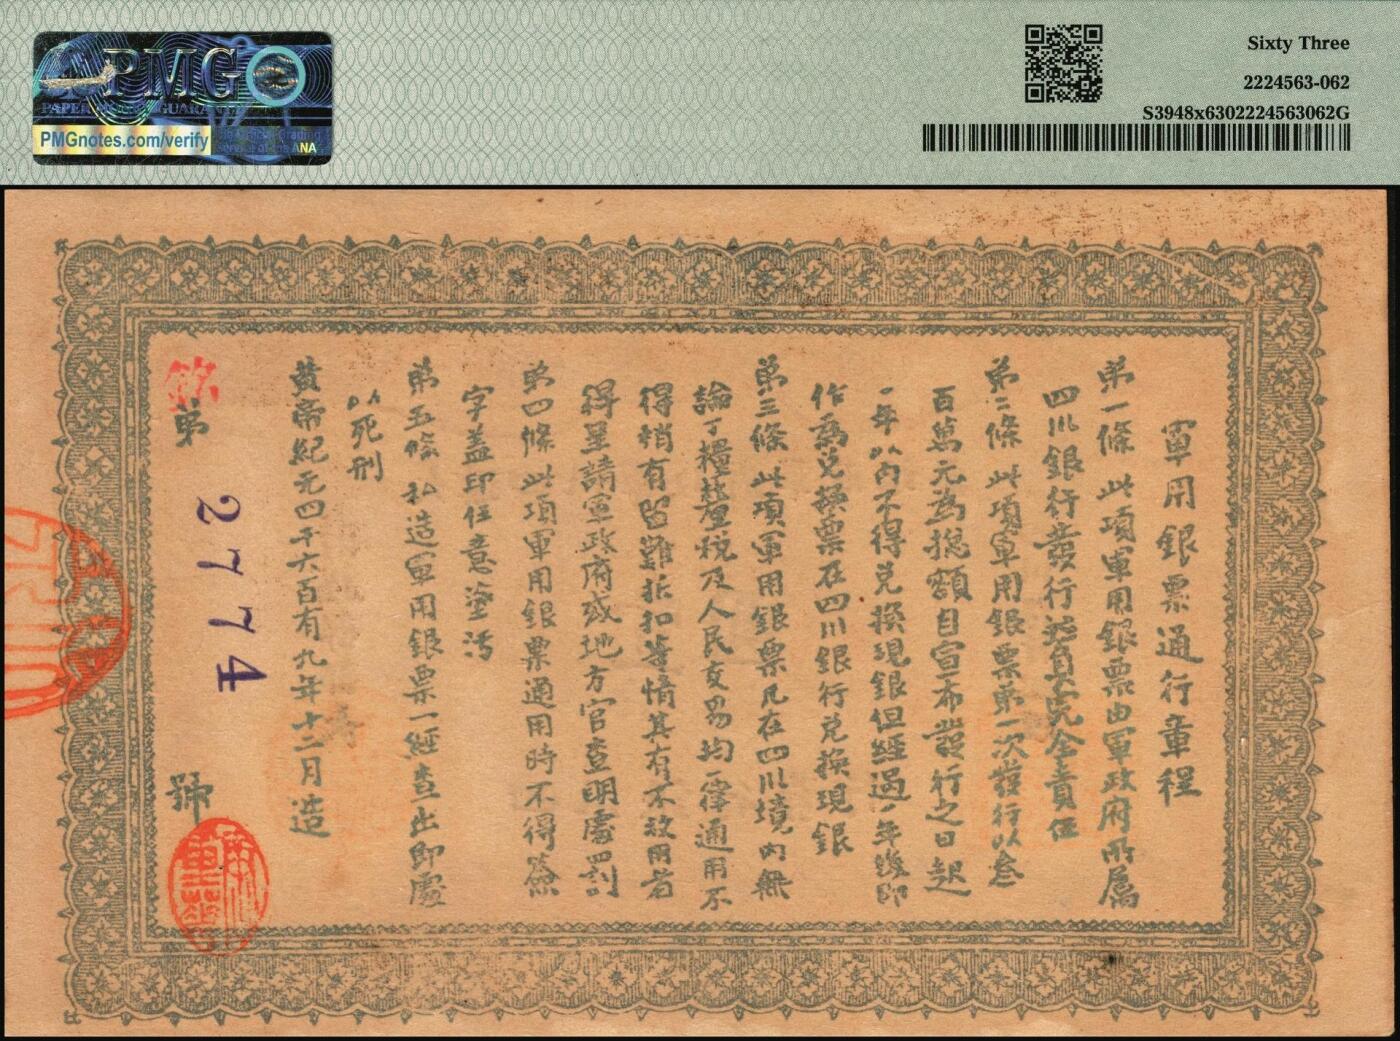 PMG
PAPER MONEY GUARANTY
PMGnotes.com/verify
ANA
Sixty Three
2224563-062
S3948x6302224563062G
軍用銀票通行章程
第一條 此項軍用銀票由軍政府所屬
四川銀行發行並負完全責任
第二條 此項軍用銀票第一次發行以叄
百萬元為總額自宣布發行之日起
一年以內不得兌換現銀但經過一年後即
作爲兌換票在四川銀行兌換現銀
第三條 此項軍用銀票凡在四川境內無
論丁糧釐稅及人民交易均一律通用不
得稍有留難折扣等情其有不放用者
得呈請軍政府或地方官查明處罰
第四條 此項軍用銀票通用時不得簽
字盖印任意塗污
第五條 私造軍用銀票一經查出即處
以死刑
黃帝紀元四千六百有九年十二月造
第 2774 號